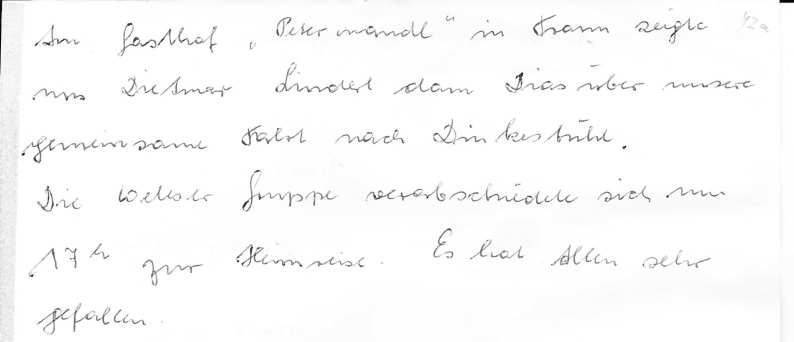 Im Gasthof „Petermandl" in Traun zeigte
uns Dietmar Lindert dann Dias über unsere
gemeinsame Fahrt nach Dinkesbühl.
Die Welser Gruppe verabschiedete sich um
17h zur Heimreise. Es hat Allen sehr
gefallen.